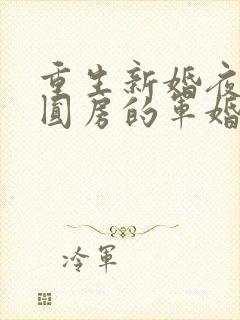 重生新婚夜
圆房的军婚
冷军